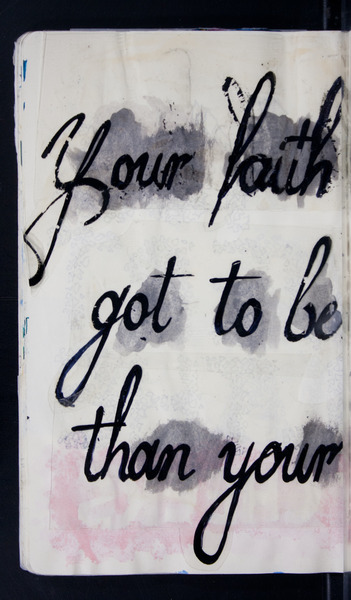 Your faith
got to be
than your